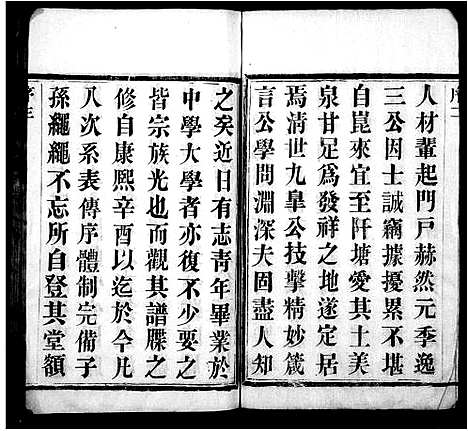 序二
人材輩起門戸赫然元季逸
三公因士誠竊據擾累不堪
自崑來宜至阡塘愛其土美
泉甘足爲發祥之地遂定居
焉清世九臯公技擊精妙箴
言公學問淵深夫固盡人知
之矣近日有志青年畢業於
中學大學者亦復不少要之
皆宗族光也而觀其譜牒之
修自康熙辛酉以迄於今凡
八次系表傳序體制完備子
孫繩繩不忘所自登其堂額
序三